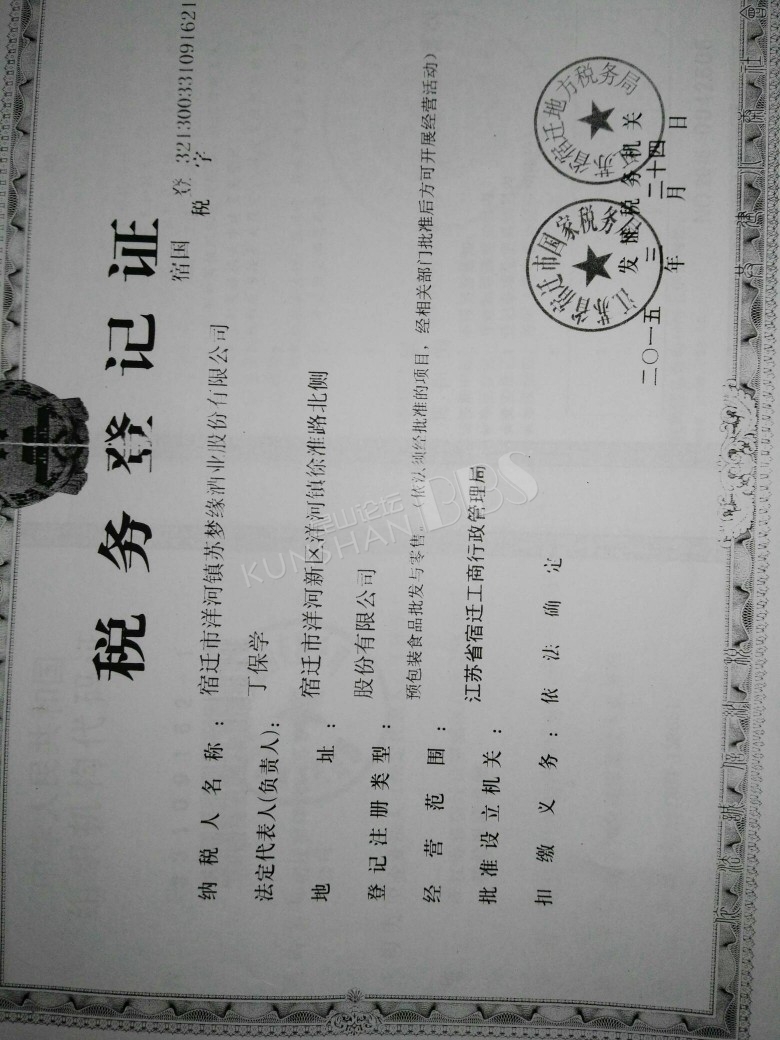 税务登记证
宿国 税登字 321300331091621
纳税人名称：宿迁市洋河镇苏梦缘酒业股份有限公司
法定代表人(负责人)：丁保学
地址：宿迁市洋河新区洋河镇徐淮路北侧
登记注册类型：股份有限公司
经营范围：预包装食品批发与零售。（依法须经批准的项目，经相关部门批准后方可开展经营活动）
批准设立机关：江苏省宿迁工商行政管理局
扣缴义务：依法确定
江苏省宿迁市国家税务
苏省宿迁地方税务局
发证税务机关
二〇一五年三月二十四日
昆山论坛
KUNSHAN BBS